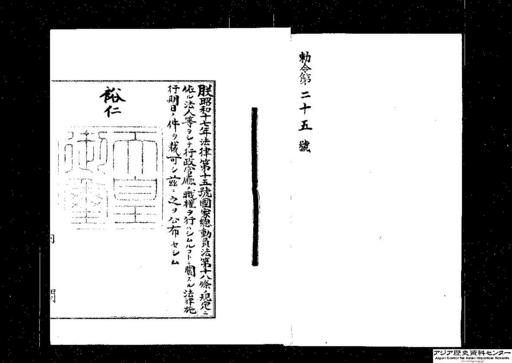 勅令第二十五號
朕昭和十七年法律第十五號國家總動員法第十八條ノ規定ニ
依ル法人等ヲシテ行政官廳ノ職權ヲ行ハシムルコトニ關スル法律施
行期日ノ件ヲ裁可シ茲ニ之ヲ公布セシム
裕仁
天皇
御璽
アジア歴史資料センター
Japan Center for Asian Historical Records